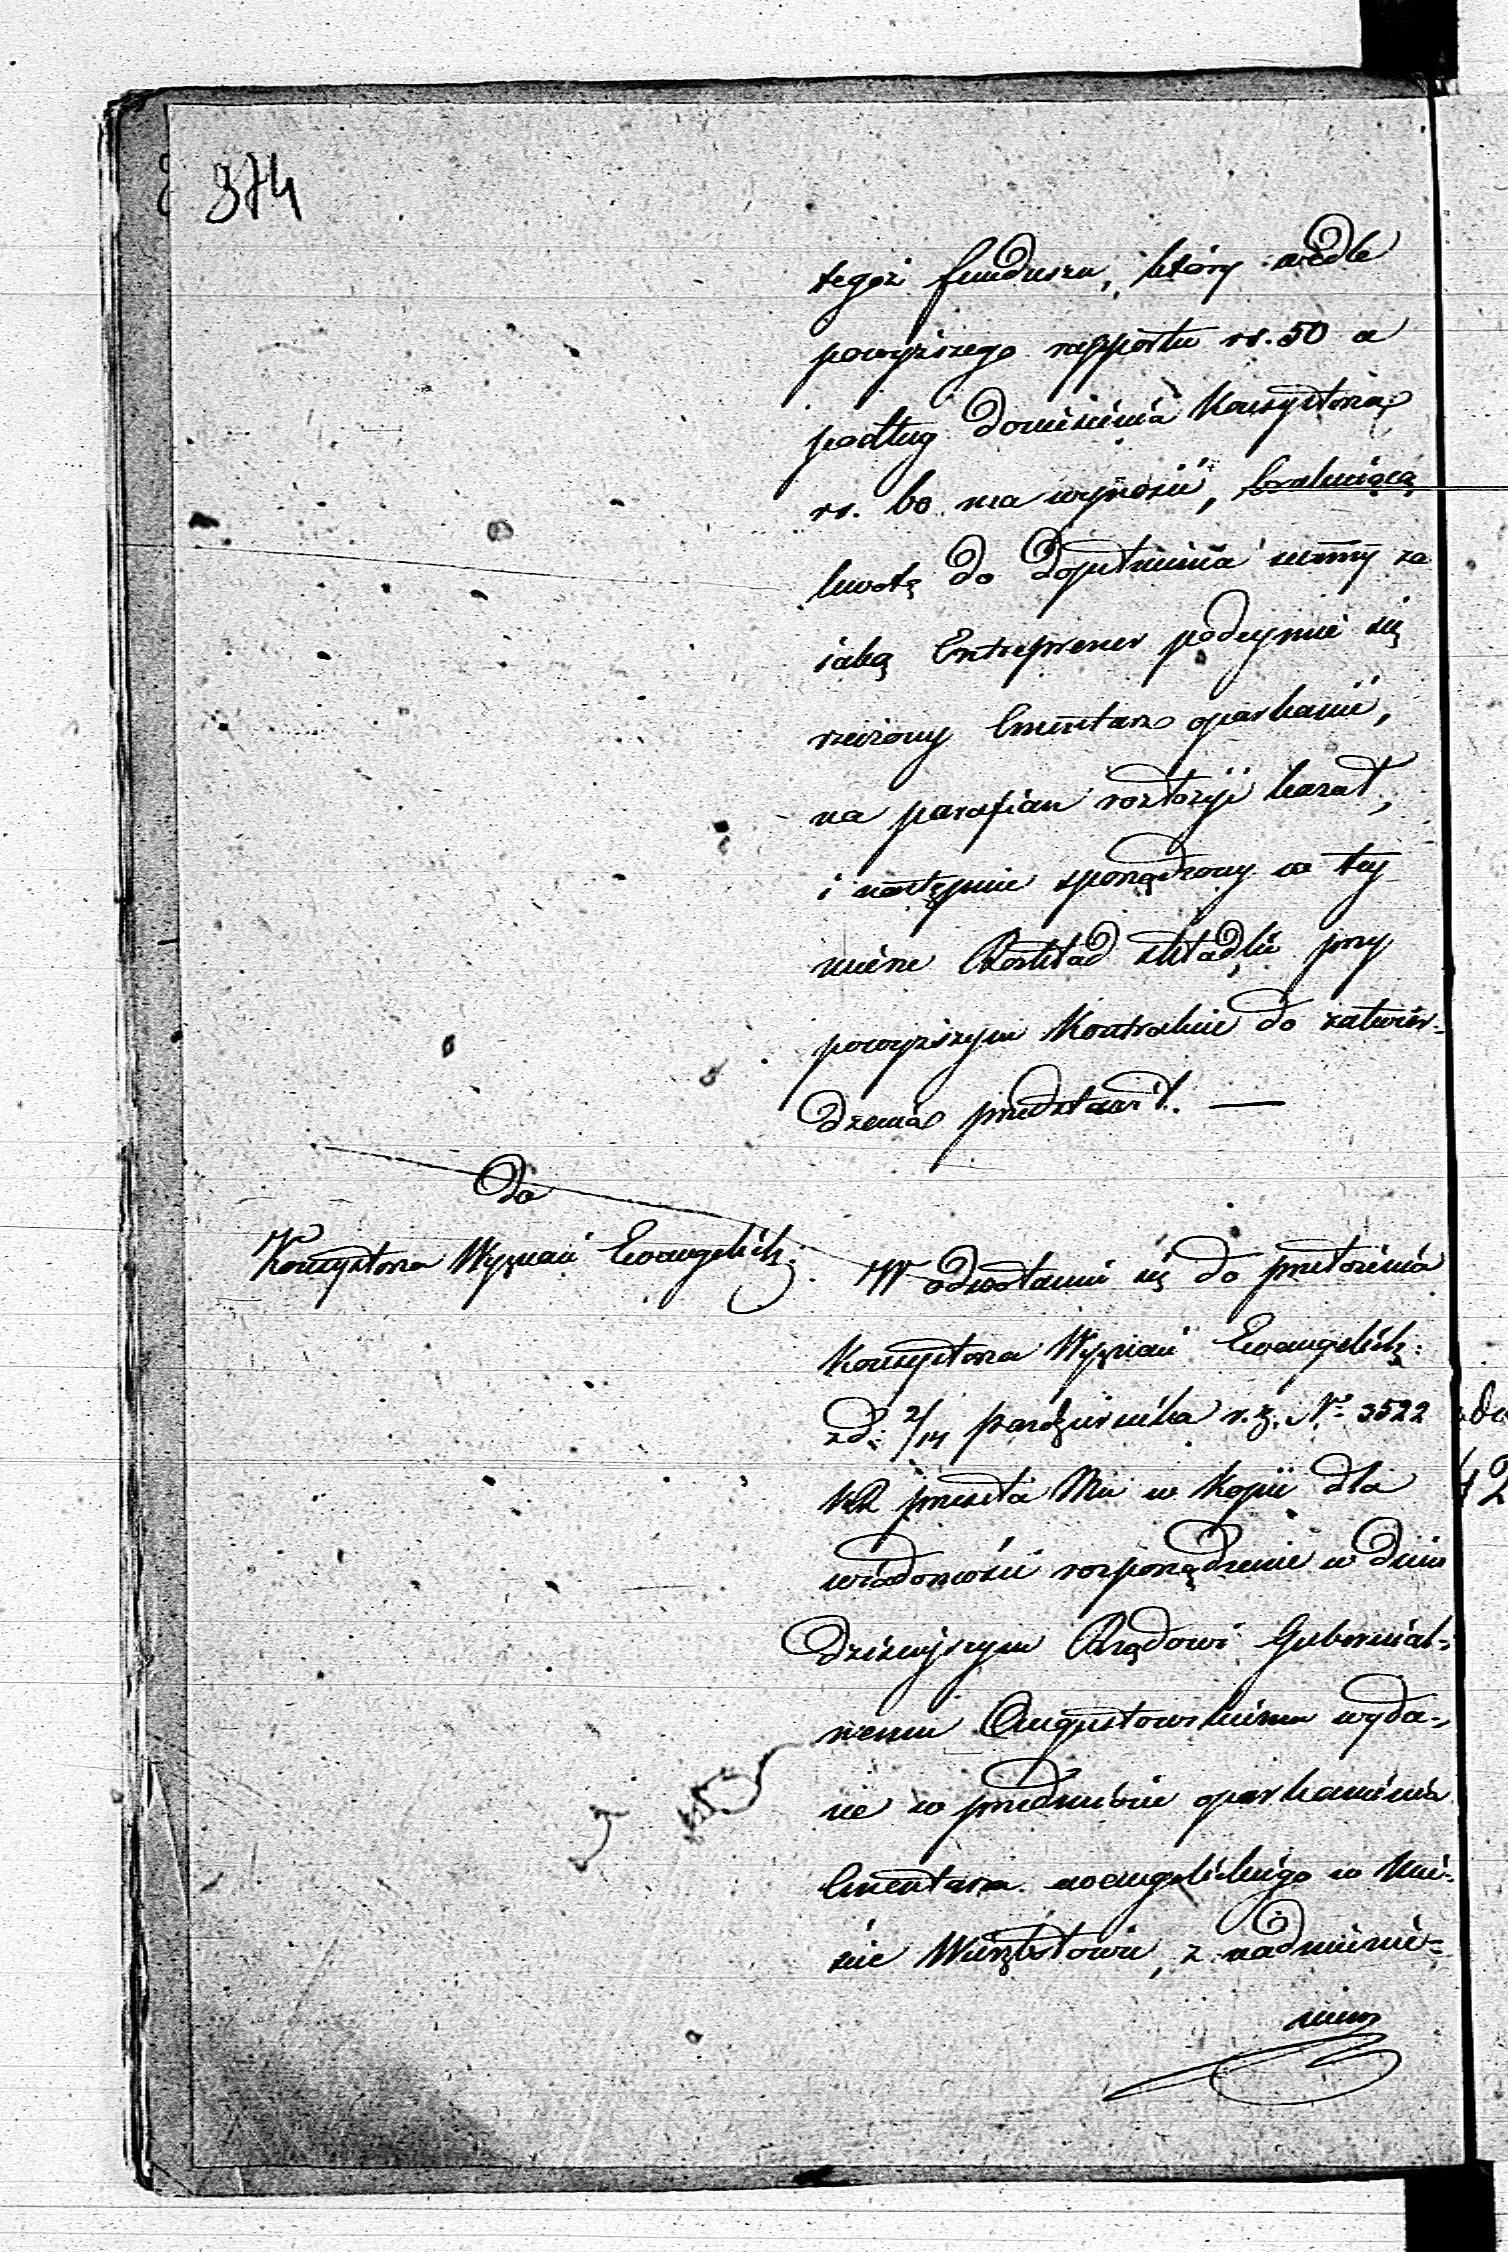 374
tegoż funduszu, który wedle
powyższego rapportu rs. 50 a
podług doniesienia Konsystorza
rs. 60 ma wynosić, brakuiącą
kwotę do dopełnienia summy za
iaką Entreprener podeymie się
rzeczony Cmentarz oparkanić,
na parafian rozłożyć kazał,
i następnie sporządzony w tey
mierze Rozkład składki przy
powyższym Kontrakcie do zatwier-
dzenia przedstawił. —
Do
Konsystorza Wyznań Ewangelick:
W odwołaniu się do przełożenia
Konsystorza Wyznań Ewangelick:
z d: 2/14 Października r. z. No 3522
przesyła Mu w kopii dla
wiadomości rozporządzenie w dniu
dzisieyszym Rządowi Gubernial-
nemu Augustowskiemu wyda-
ne w przedmiocie oparkanienia
Cmentarza ewangelickiego w Mie-
ście Wierzbołowie, z nadmienie-
niem